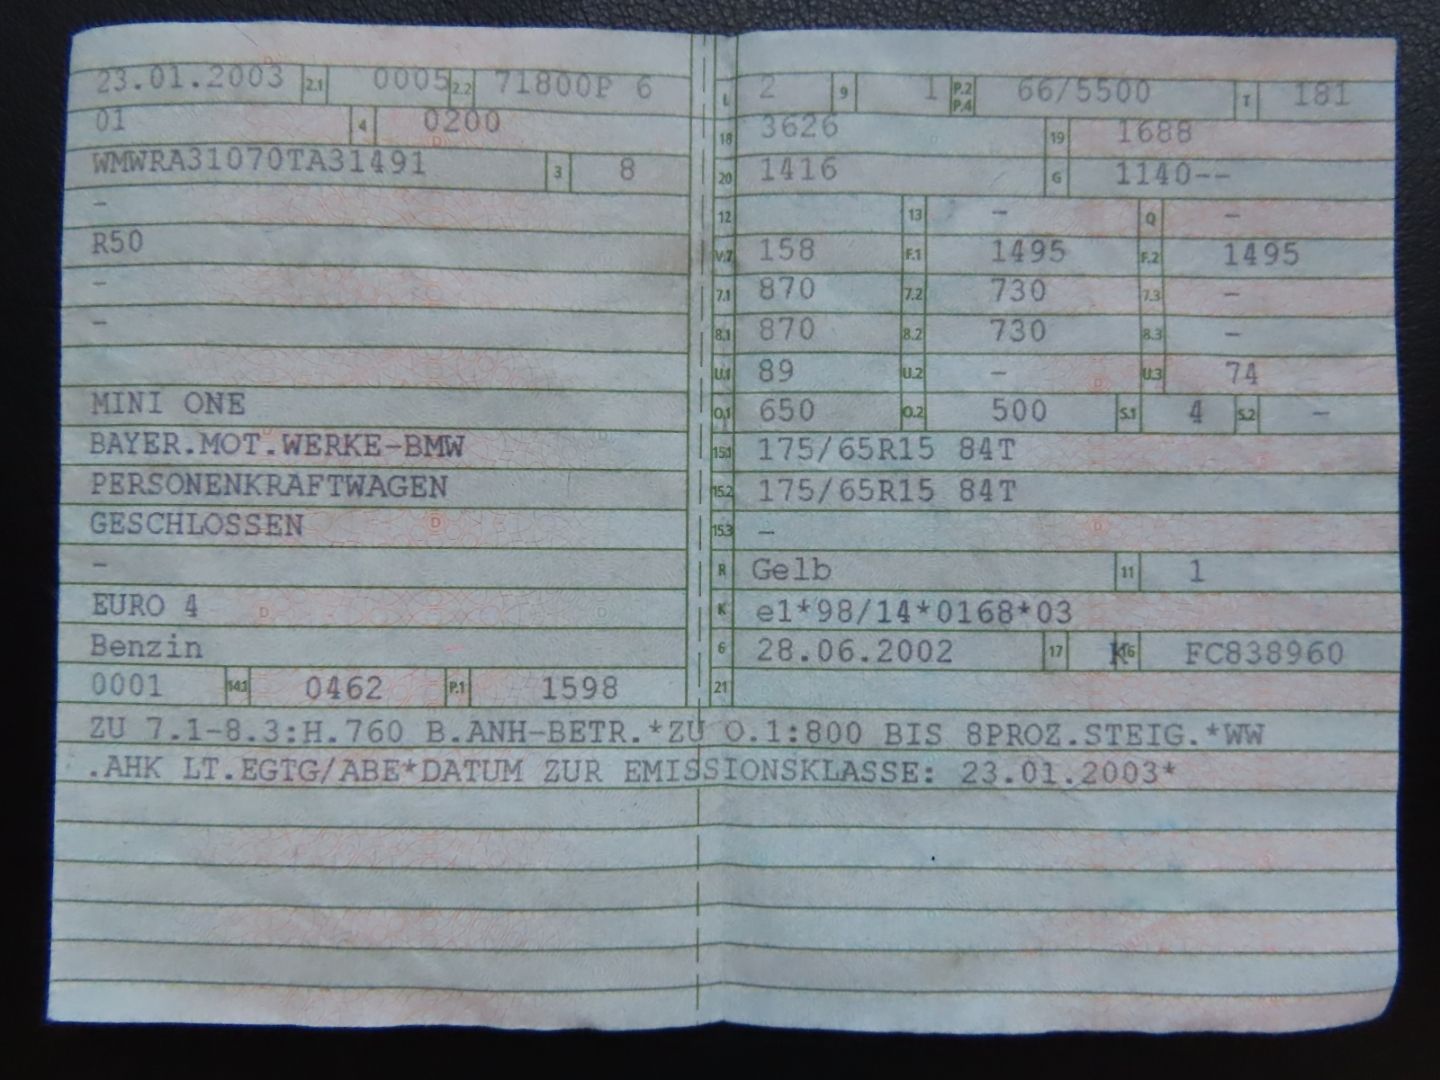 23.01.2003 2.1 0005 2.2 71800P 6
01 4 0200
WMWRA31070TA31491 3 8
-
R50
-
-
MINI ONE
BAYER.MOT.WERKE-BMW
PERSONENKRAFTWAGEN
GESCHLOSSEN
-
EURO 4
Benzin
0001 14.1 0462 P.1 1598
L 2 9 1 P.2 P.4 66/5500 T 181
18 3626 19 1688
20 1416 G 1140--
12 13 - Q -
V.7 158 F.1 1495 F.2 1495
7.1 870 7.2 730 7.3 -
8.1 870 8.2 730 8.3 -
U.1 89 U.2 - U.3 74
O.1 650 O.2 500 S.1 4 S.2 -
15.1 175/65R15 84T
15.2 175/65R15 84T
15.3 -
R Gelb 11 1
K e1*98/14*0168*03
6 28.06.2002 17 K 16 FC838960
21
ZU 7.1-8.3:H.760 B.ANH-BETR.*ZU O.1:800 BIS 8PROZ.STEIG.*WW
.AHK LT.EGTG/ABE*DATUM ZUR EMISSIONSKLASSE: 23.01.2003*